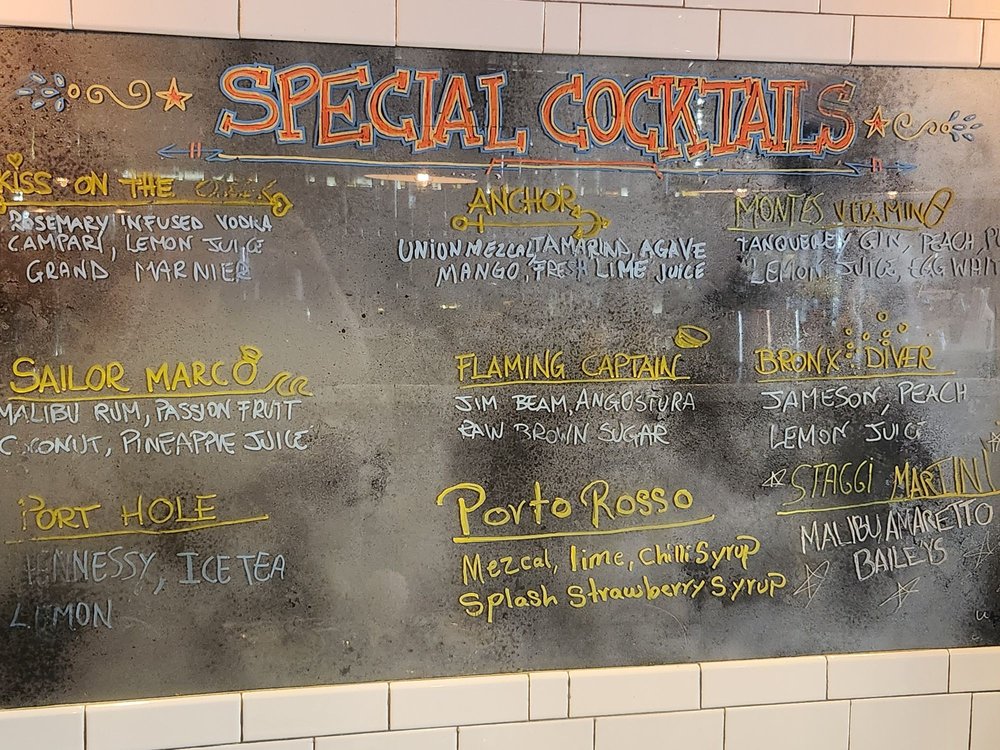 SPECIAL COCKTAILS
KISS ON THE
ROSEMARY INFUSED VODKA
CAMPARI, LEMON JUICE
GRAND MARNIER
ANCHOR
UNION MEZCAL, TAMARIND, AGAVE
MANGO, FRESH LIME JUICE
MONTES VITAMIN
TANQUEREY GIN, PEACH
LEMON JUICE, EGG WHIT
SAILOR MARCO
MALIBU RUM, PASSION FRUIT
COCONUT, PINEAPPLE JUICE
FLAMING CAPTAIN
JIM BEAM, ANGOSTURA
RAW BROWN SUGAR
BRONX DIVER
JAMESON, PEACH
LEMON JUICE
PORT HOLE
HENNESSY, ICE TEA
LEMON
Porto Rosso
Mezcal, lime, Chilli Syrup
Splash Strawberry Syrup
STAGGI MARTINI
MALIBU, AMARETTO
BAILEYS